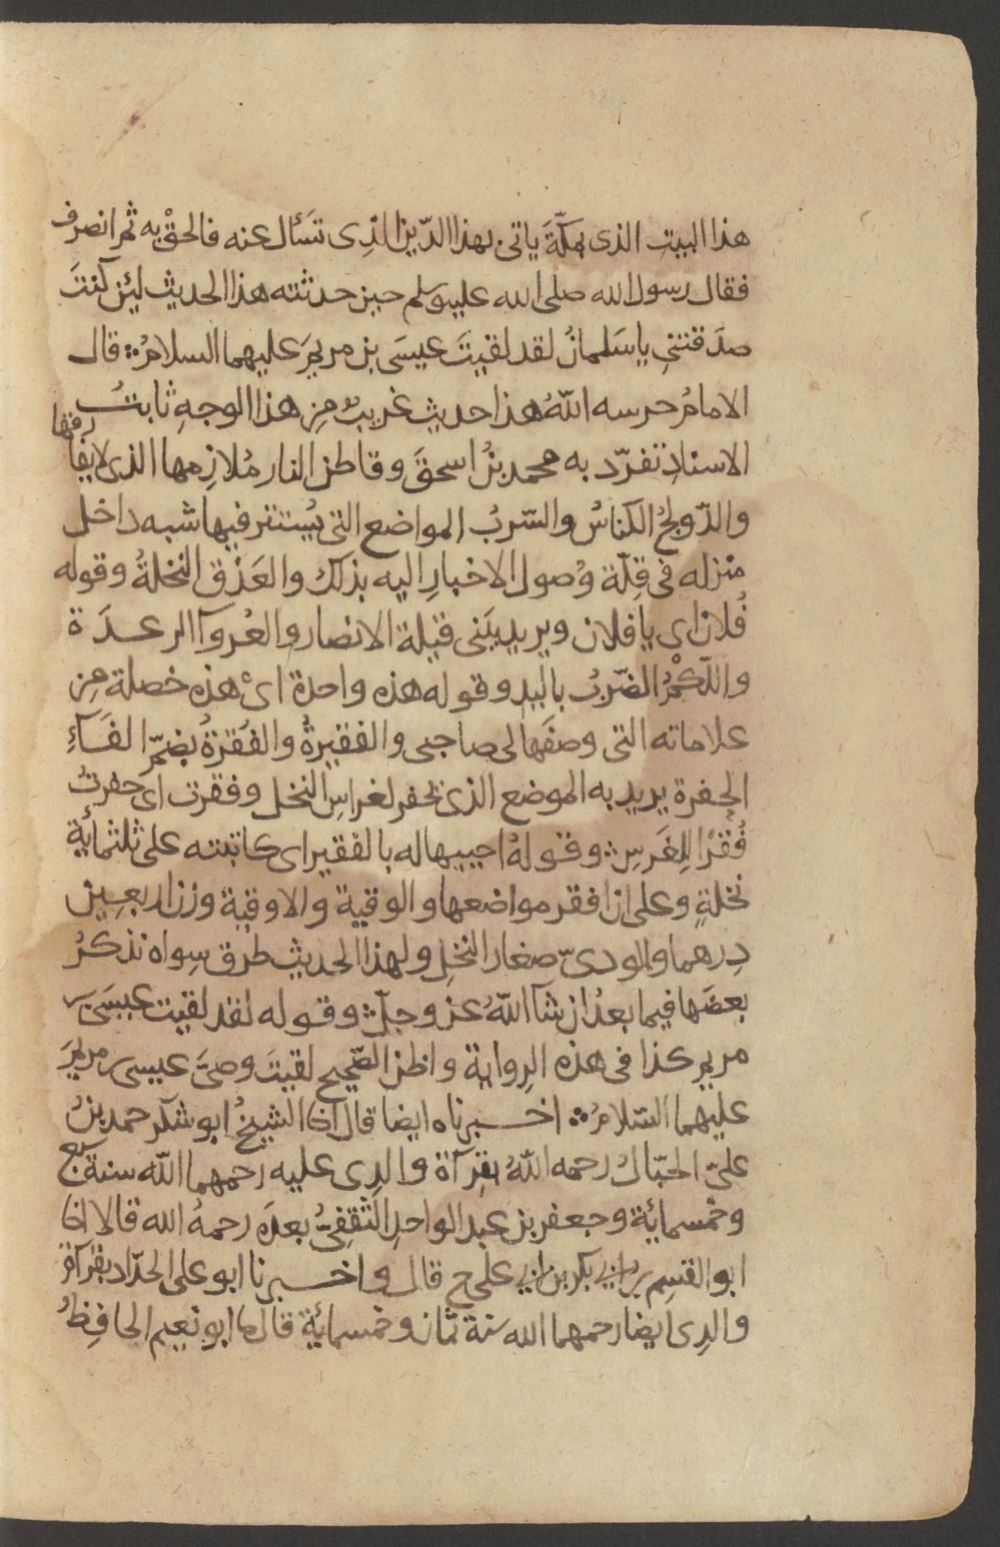 هذا البيت الذى بمكّةَ ياتى بهذا الدّين الّذِى تسَأل عنه فالحقْ به ثم انصرف
فقال رسول الله صلى الله عليه وسلم حين حدثته هذا الحديث لئن كنتَ
صدَقتنى يا سَلمانُ لقد لقيتَ عيسَى بن مريمَ عليهما السلامُ ∴ قال
الامامُ حرسه اللهُ هذا حديث غريبٌ مِن هذا الوجهِ ثابتُ
الاسنادِ تفرّد به محمد بنُ اسحقَ وقاطن النار مُلازِمها الذى لا يفارقها
والدّولجُ الكناسُ والسّربُ المواضع التى يُستتر فيها شبه داخل
منزله فى قِلّة وُصول الاخبارِ اليه بذلك والعَذق النخلةُ وقوله
فُلان اى يا فلان ويريد ببَنى قيلة الانصار والعُروآ الرعدَة
واللّكْمُ الضّربُ باليد وقوله هذه واحدة اىْ هذه خصلة مِن
علاماته التى وصفَها لى صاحبى والفقيرةُ والفُقرةُ بضمّ الفَآءِ
الحفرة يريد به الموضع الذى تحفر لغراسِ النخل وفقرت اى حفرتُ
فُقرًا للِغَرسِ ∴ وقولهُ احييها له بالفقير اى كاتبته على ثلثمائة
نخلةٍ وعلى ان افقر مواضعها والوقية والاوقية وزن اربعين
دِرهما والودىّ صغار النخلِ ولهذا الحديث طرق سِواه نذكرُ
بعضَها فيما بعدُ ان شآ اللهُ عز وجلّ ∴ وقوله لقد لقيت عيسَى بن
مريم كذا فى هذه الرِواية واظن الصّحيح لقيتَ وصىَّ عيسى بن مريمَ
عليهما السّلامُ ∴ اخبرناه ايضا قال انا الشيخُ ابو شكر حمد بنُ
علىّ الحبّالُ رحمه اللهُ بقرآة والدِى عليه رحمهما الله سنة سبع
وخمسمائة وجعفر بن عبد الواحدِ الثقفِىُّ بعدَه رحمهُ الله قالا انا
ابو القسِم بن ابى بكر بن ابى على ح قال واخبرنا ابو على الحدّاد بقرآة
والدِى ايضا رحمهما الله سنة ثمان وخمسمائة قال نا ابو نعيم الحافِظُ